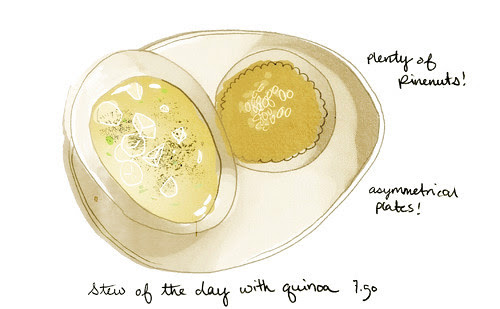 plenty of
pinenuts!
asymmetrical
plates!
stew of the day with quinoa 7.50